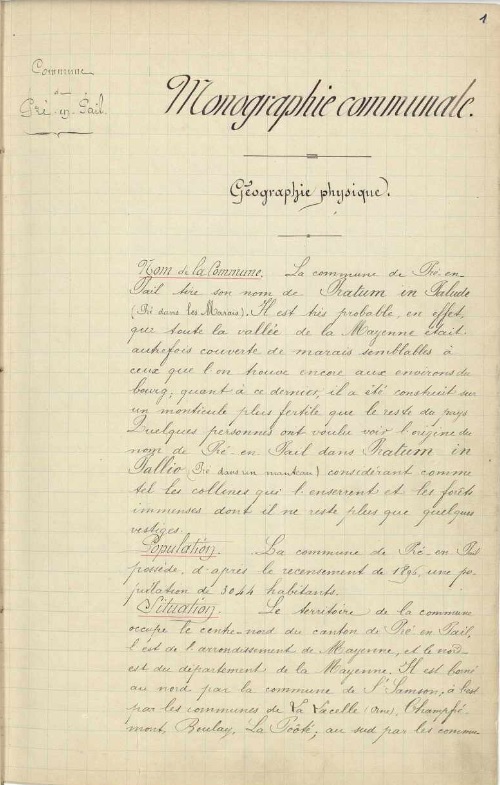 1
Commune
de
Pré-en-Pail.
Monographie communale.
Géographie physique.
Nom de la Commune. La commune de Pré-en-
Pail tire son nom de Pratum in Palude
(Pré dans les Marais). Il est très probable, en effet,
que toute la vallée de la Mayenne était
autrefois couverte de marais semblables à
ceux que l'on trouve encore aux environs du
bourg; quant à ce dernier, il a été construit sur
un monticule plus fertile que le reste du pays
Quelques personnes ont voulu voir l'origine du
nom de Pré-en-Pail dans Pratum in
Pallio (Pré dans un manteau) considérant comme
tel les collines qui l'enserrent et les forêts
immenses dont il ne reste plus que quelques
vestiges.
Population. La commune de Pré en Pail
possède, d'après le recensement de 1896, une po-
pulation de 3044 habitants.
Situation. Le territoire de la commune
occupe le centre-nord du canton de Pré en Pail,
l'est de l'arrondissement de Mayenne, et le nord-
est du département de la Mayenne. Il est borné
au nord par la commune de St Samson; à l'est
par les communes de La Lacelle (Orne), Champfré-
mont, Boulay, La Pôôté; au sud par les commu